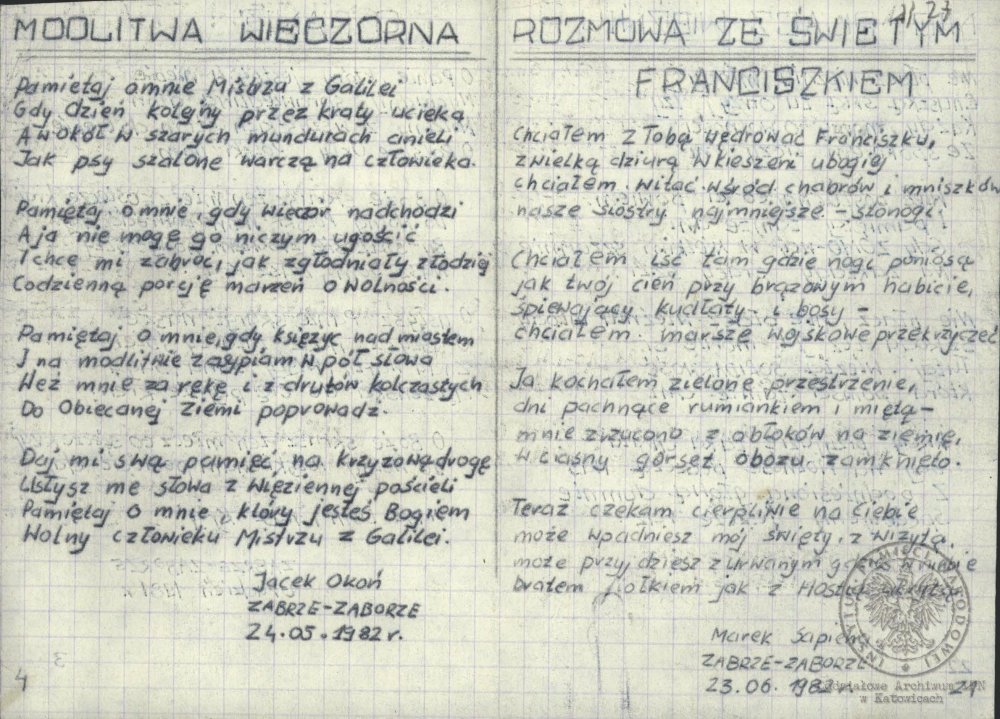 MODLITWA WIECZORNA
Pamiętaj o mnie Mistrzu z Galilei
Gdy dzień kolejny przez kraty ucieka
A wokół w szarych mundurach anieli
Jak psy szalone warczą na człowieka.
Pamiętaj o mnie, gdy wieczór nadchodzi
A ja nie mogę go niczym ugościć
I chce mi zabrać, jak zgłodniały złodziej
Codzienną porcję marzeń o wolności.
Pamiętaj o mnie, gdy księżyc nad miastem
I na modlitwie zasypiam w pół słowa
Weź mnie za rękę i z drutów kolczastych
Do Obiecanej Ziemi poprowadź.
Daj mi swą pamięć na krzyżową drogę
Usłysz me słowa z więziennej pościeli
Pamiętaj o mnie, który jesteś Bogiem
Wolny człowieku Mistrzu z Galilei.
Jacek Okoń
ZABRZE-ZABORZE
24.05.1982 r.
4
ROZMOWA ZE ŚWIĘTYM
FRANCISZKIEM
Chciałem z Tobą wędrować Franciszku,
z wielką dziurą w kieszeni ubogiej
chciałem witać wśród chabrów i mniszków
nasze siostry najmniejsze - stonogi.
Chciałem iść tam gdzie nogi poniosą
jak twój cień przy brązowym habicie,
śpiewający kudłaty - i bosy -
chciałem marsze wojskowe przekrzyczeć
Ja kochałem zielone przestrzenie,
dni pachnące rumiankiem i miętą -
mnie zrzucono z obłoków na ziemię,
w ciasny gorset obozu zamknięto.
Teraz czekam cierpliwie na Ciebie
może wpadniesz mój święty, z wizytą.
może przyjdziesz z urwanym
bratem jak z
Marek Sapieha
ZABRZE-ZABORZE
23.06.1982 r.
21
INSTYTUT PAMIĘCI NARODOWEJ
Oddziałowe Archiwum IPN
w Katowicach